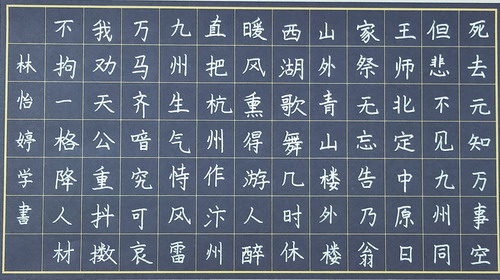 死去元知万事空
但悲不见九州同
王师北定中原日
家祭无忘告乃翁
山外青山楼外楼
西湖歌舞几时休
暖风熏得游人醉
直把杭州作汴州
九州生气恃风雷
万马齐喑究可哀
我劝天公重抖擞
不拘一格降人材
林怡婷学書